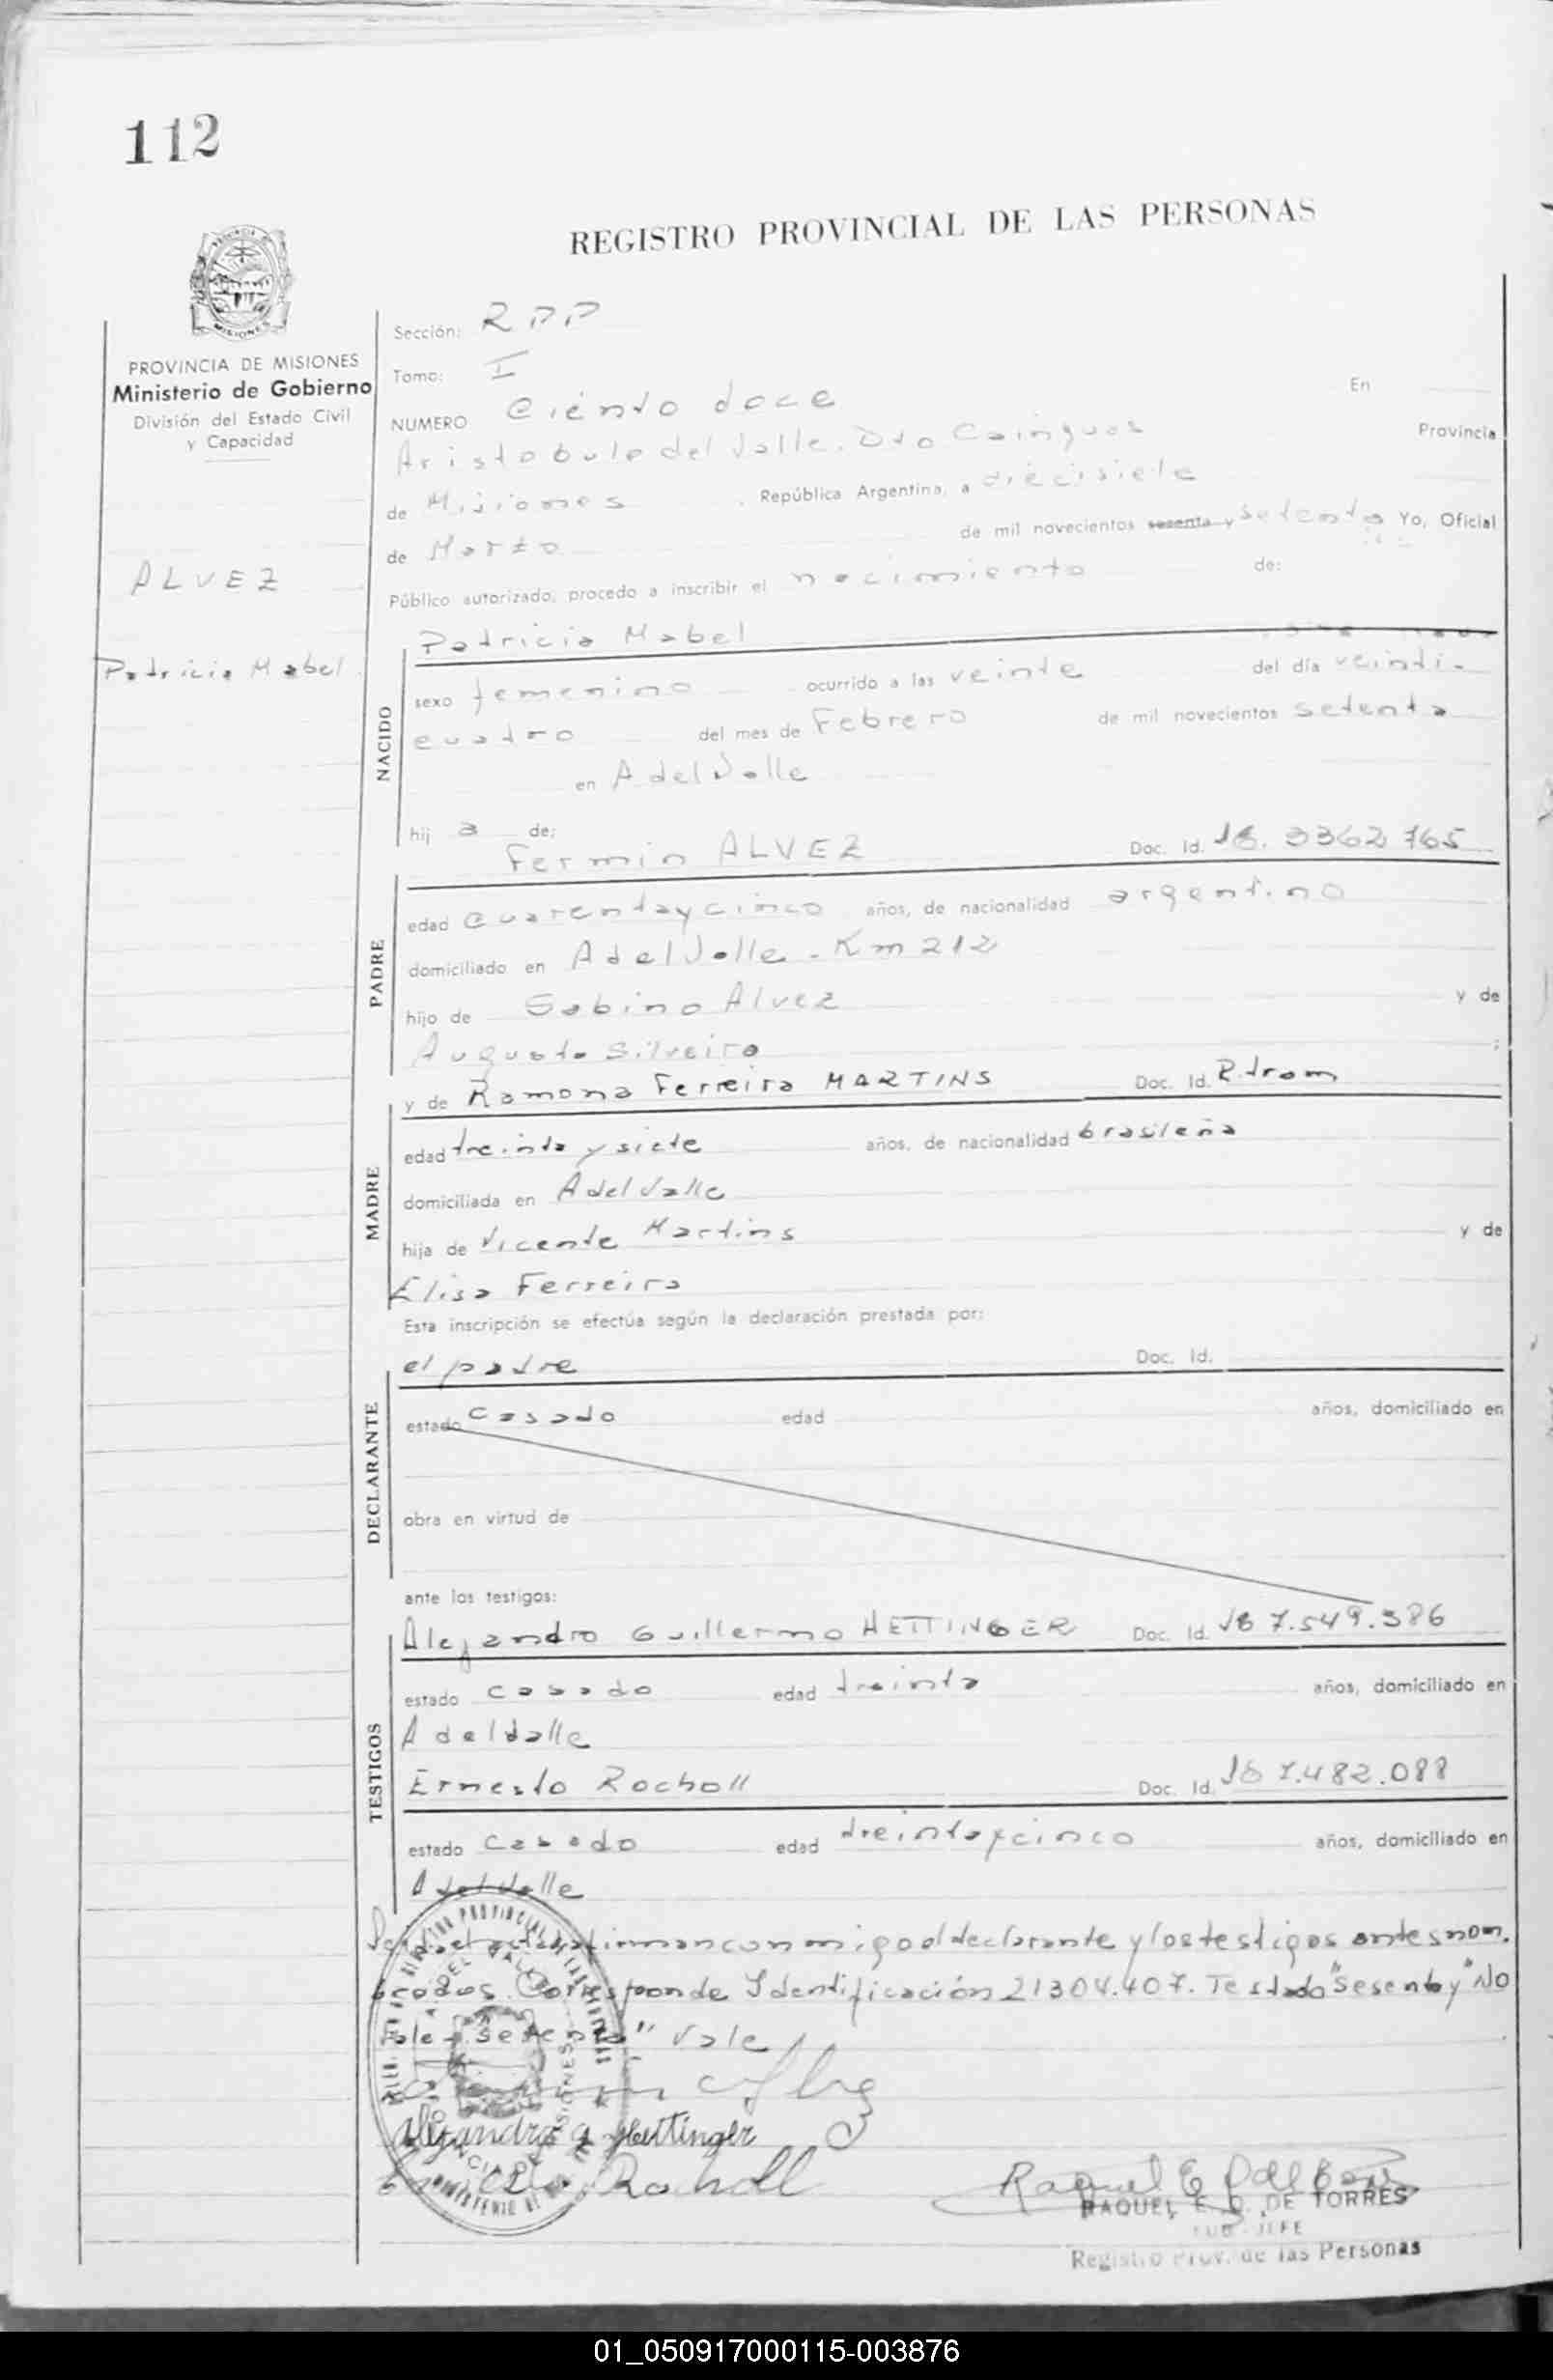 112
REGISTRO PROVINCIAL DE LAS PERSONAS
MISIONES
PROVINCIA DE MISIONES
Ministerio de Gobierno
División del Estado Civil
y Capacidad
ALVEZ
Patricia Mabel
Sección: RPP
Tomo: I
En
NUMERO Ciento doce
Aristobulo del Valle. Dto Cainguas Provincia
de Misiones. República Argentina, a diecisiete
de Marzo de mil novecientos sesenta y setenta Yo, Oficial
Público autorizado, procedo a inscribir el nacimiento de:
NACIDO
Patricia Mabel
sexo femenino ocurrido a las veinte del día veinti-
cuatro del mes de Febrero de mil novecientos setenta
en A del Valle
hij a de:
PADRE
Fermin ALVEZ Doc. Id. 18. 3362 765
edad cuarenta y cinco años, de nacionalidad argentino
domiciliado en A del Valle - Km 212
hijo de Sabino Alvez y de
Augusta Silveira ;
MADRE
y de Ramona Ferreira MARTINS Doc. Id. R. tram
edad treinta y siete años, de nacionalidad brasileña
domiciliada en A del Valle
hija de Vicente Martins y de
Elisa Ferreira
Esta inscripción se efectúa según la declaración prestada por:
DECLARANTE
el padre Doc. Id.
estado casado edad años, domiciliado en
obra en virtud de
ante los testigos:
TESTIGOS
Alejandro Guillermo HETTINGER Doc. Id. 18 7.549.386
estado casado edad treinta años, domiciliado en
A del Valle
Ernesto Rocholl Doc. Id. 18 7.482.088
estado casado edad treinta y cinco años, domiciliado en
A del Valle
firman conmigo el declarante y los testigos antes nom.
brados. Corresponde Identificación 21304.407. Testado "Sesenta y" No
vale - "Setenta" Vale
Alejandro G Hettinger
Rocholl
RAQUEL E. D. DE TORRES
SUB-JEFE
Registro Prov. de las Personas
01_050917000115-003876